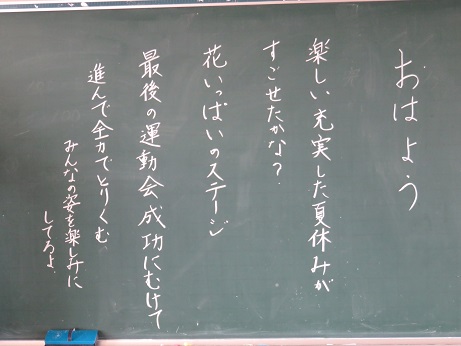 おはよう
楽しい充実した夏休みが
すごせたかな？
花いっぱいのステージ
最後の運動会成功にむけて
進んで全力でとりくむ
みんなの姿を楽しみに
してるよ